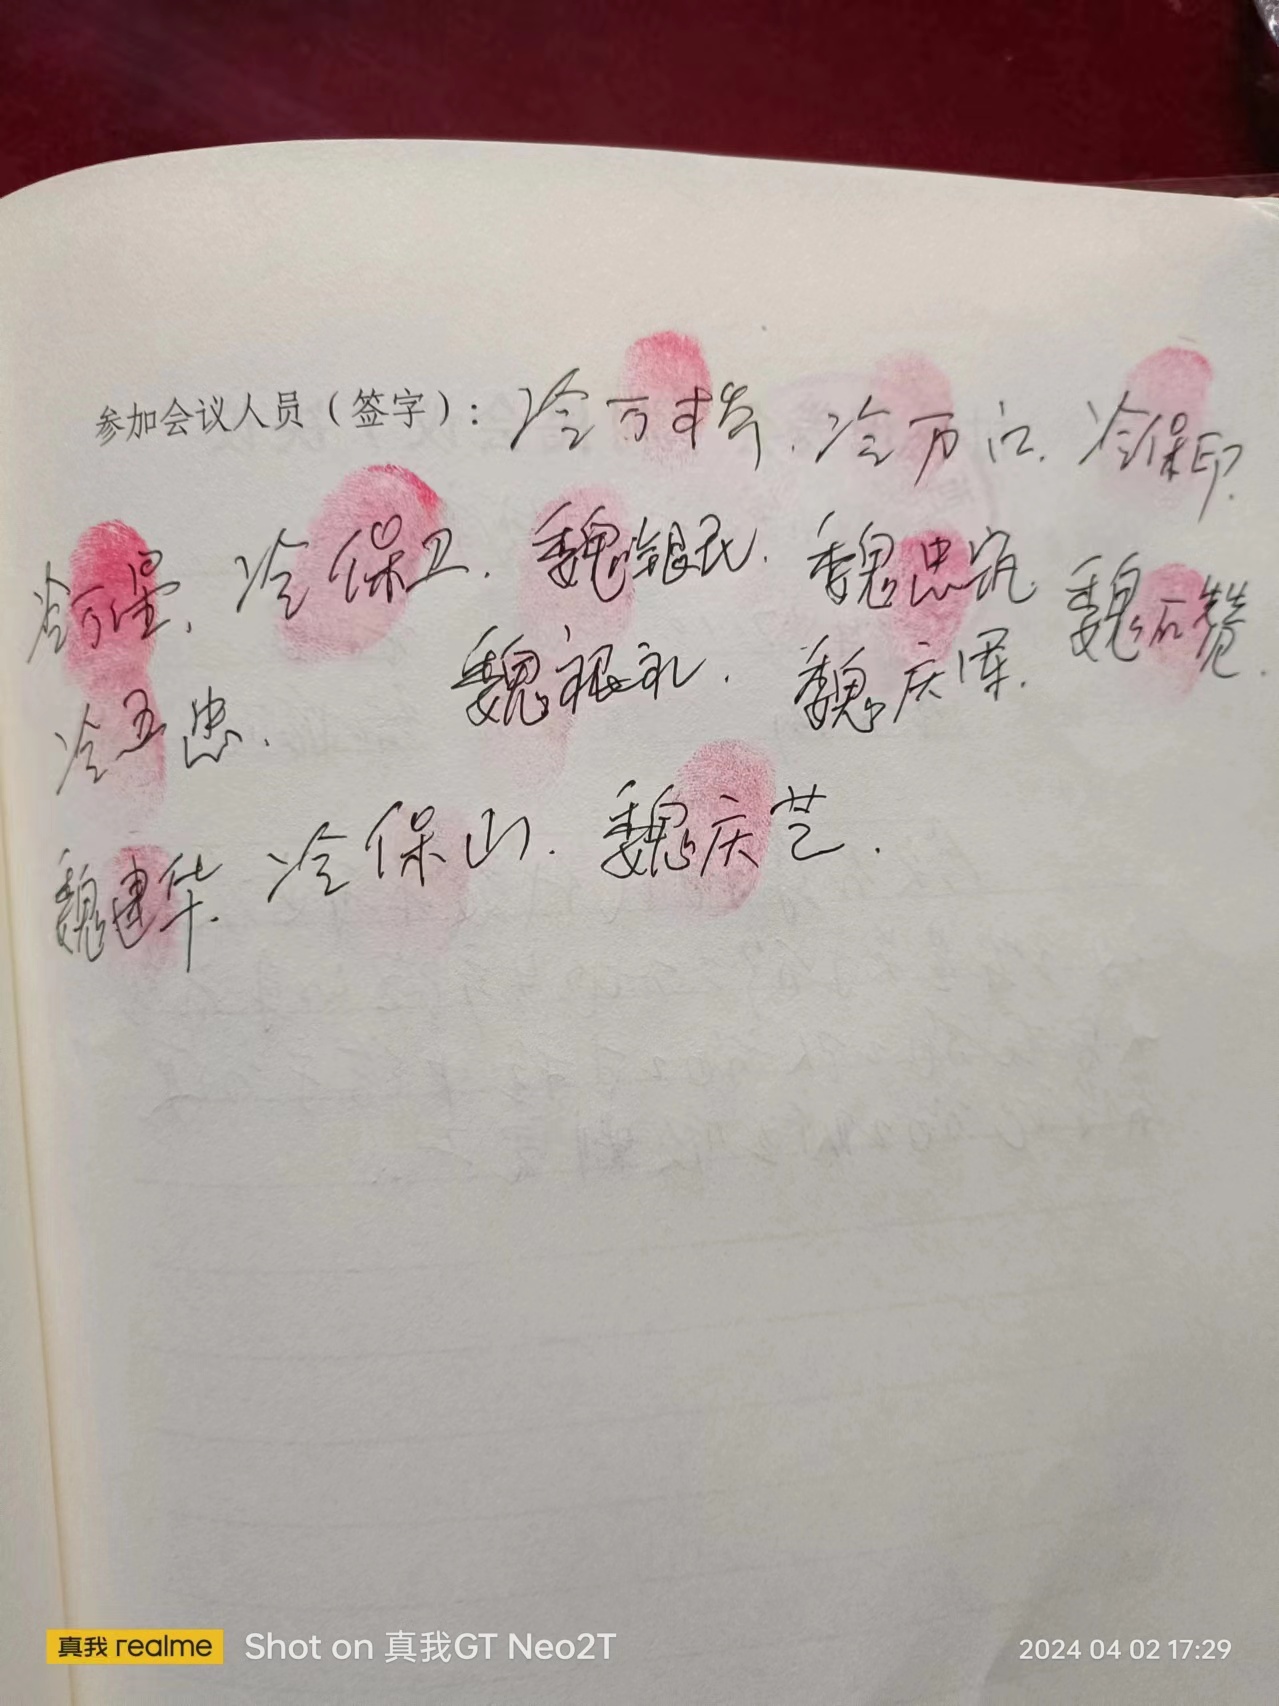 参加会议人员（签字）：冷万才 . 冷万江. 冷保印.
冷万堡. 冷保卫. 魏银民. 魏忠 魏石赞.
冷五忠. 魏根礼. 魏庆军.
魏建华. 冷保山. 魏庆芝.
真我 realme Shot on 真我GT Neo2T 2024 04 02 17:29